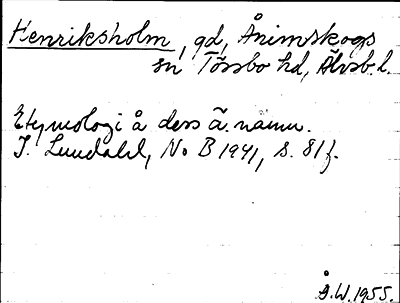 Henriksholm, gd, Ånimskogs
sn Tössbo hd, Älvsb. l.
Etymologi å dess ä. namn.
I. Lundahl, No B 1941, s. 81 f.
Å.W. 1955.